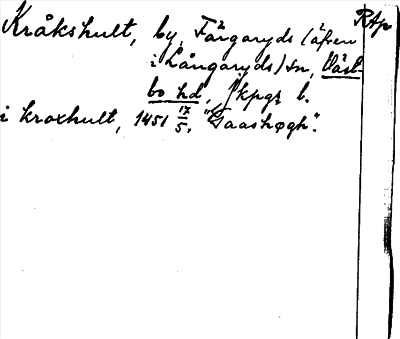 Kråkshult, by, Färgaryds (äfven RAp
i Långaryds) sn, Väst-
bo hd, Jkpgs l.
i kroxhult, 1451 17/5. "Gaashøgh".